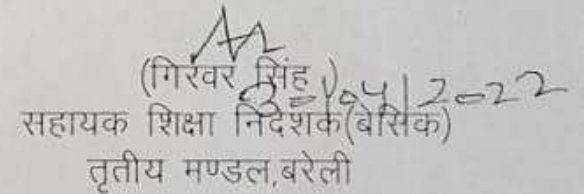 (गिरवर सिंह)
सहायक शिक्षा निदेशक(बेसिक)
तृतीय मण्डल,बरेली